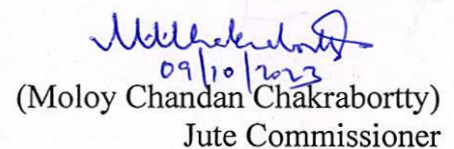 09/10/2023
(Moloy Chandan Chakrabortty)
Jute Commissioner